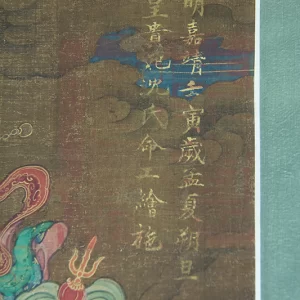 明嘉靖壬寅歲孟夏朔旦
皇貴妃沈氏命工繪施